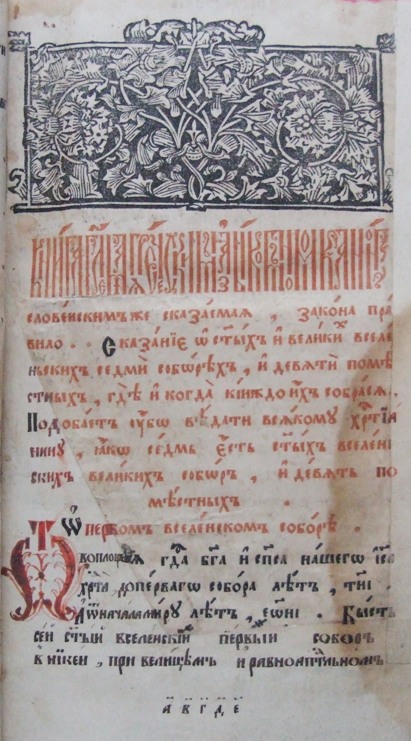 Книга глаголемая греческимъ языкомъ номоканонъ,
словенскимъже сказаемая, зако́на пра
вило. Сказа́нїе ѡ҆ ст҃ы́хъ и҆ вели́кихъ вселе́
ньскихъ седми́ собѡ́рѣхъ, и҆ девяти́ помѣ́
стныхъ, гдѣ̀ и҆ когда̀ кі́иждо и҆́хъ собра́ся.
Подоба́етъ ᲂу҆́бѡ вѣ́дати вся́кому хрⷭ҇тїа
нину, ꙗ҆́кѡ се́дмь є҆́сть ст҃ы́хъ вселе́н
скихъ вели́кихъ собѡ́ръ, и҆ де́вять по
мѣ́стныхъ.
Ѡ҆ пе́рвомъ вселе́нскомъ собо́рѣ.
Ѿ воплоще́нїѧ гдⷭ҇а бг҃а и҆ сп҃са на́шегѡ і҆с҃а
хрⷭ҇та̀ допе́рвагѡ собо́ра лѣ́тъ, ти҃і
Ѿнача́ламиру лѣ́тъ, ѕ҃ѡн҃і. Бы́сть
се́й ст҃ы́й вселе́нскїй пе́рвый собо́ръ
в̾ нїке́и, при вели́цѣмъ и равноап҃льномъ
а в г д е